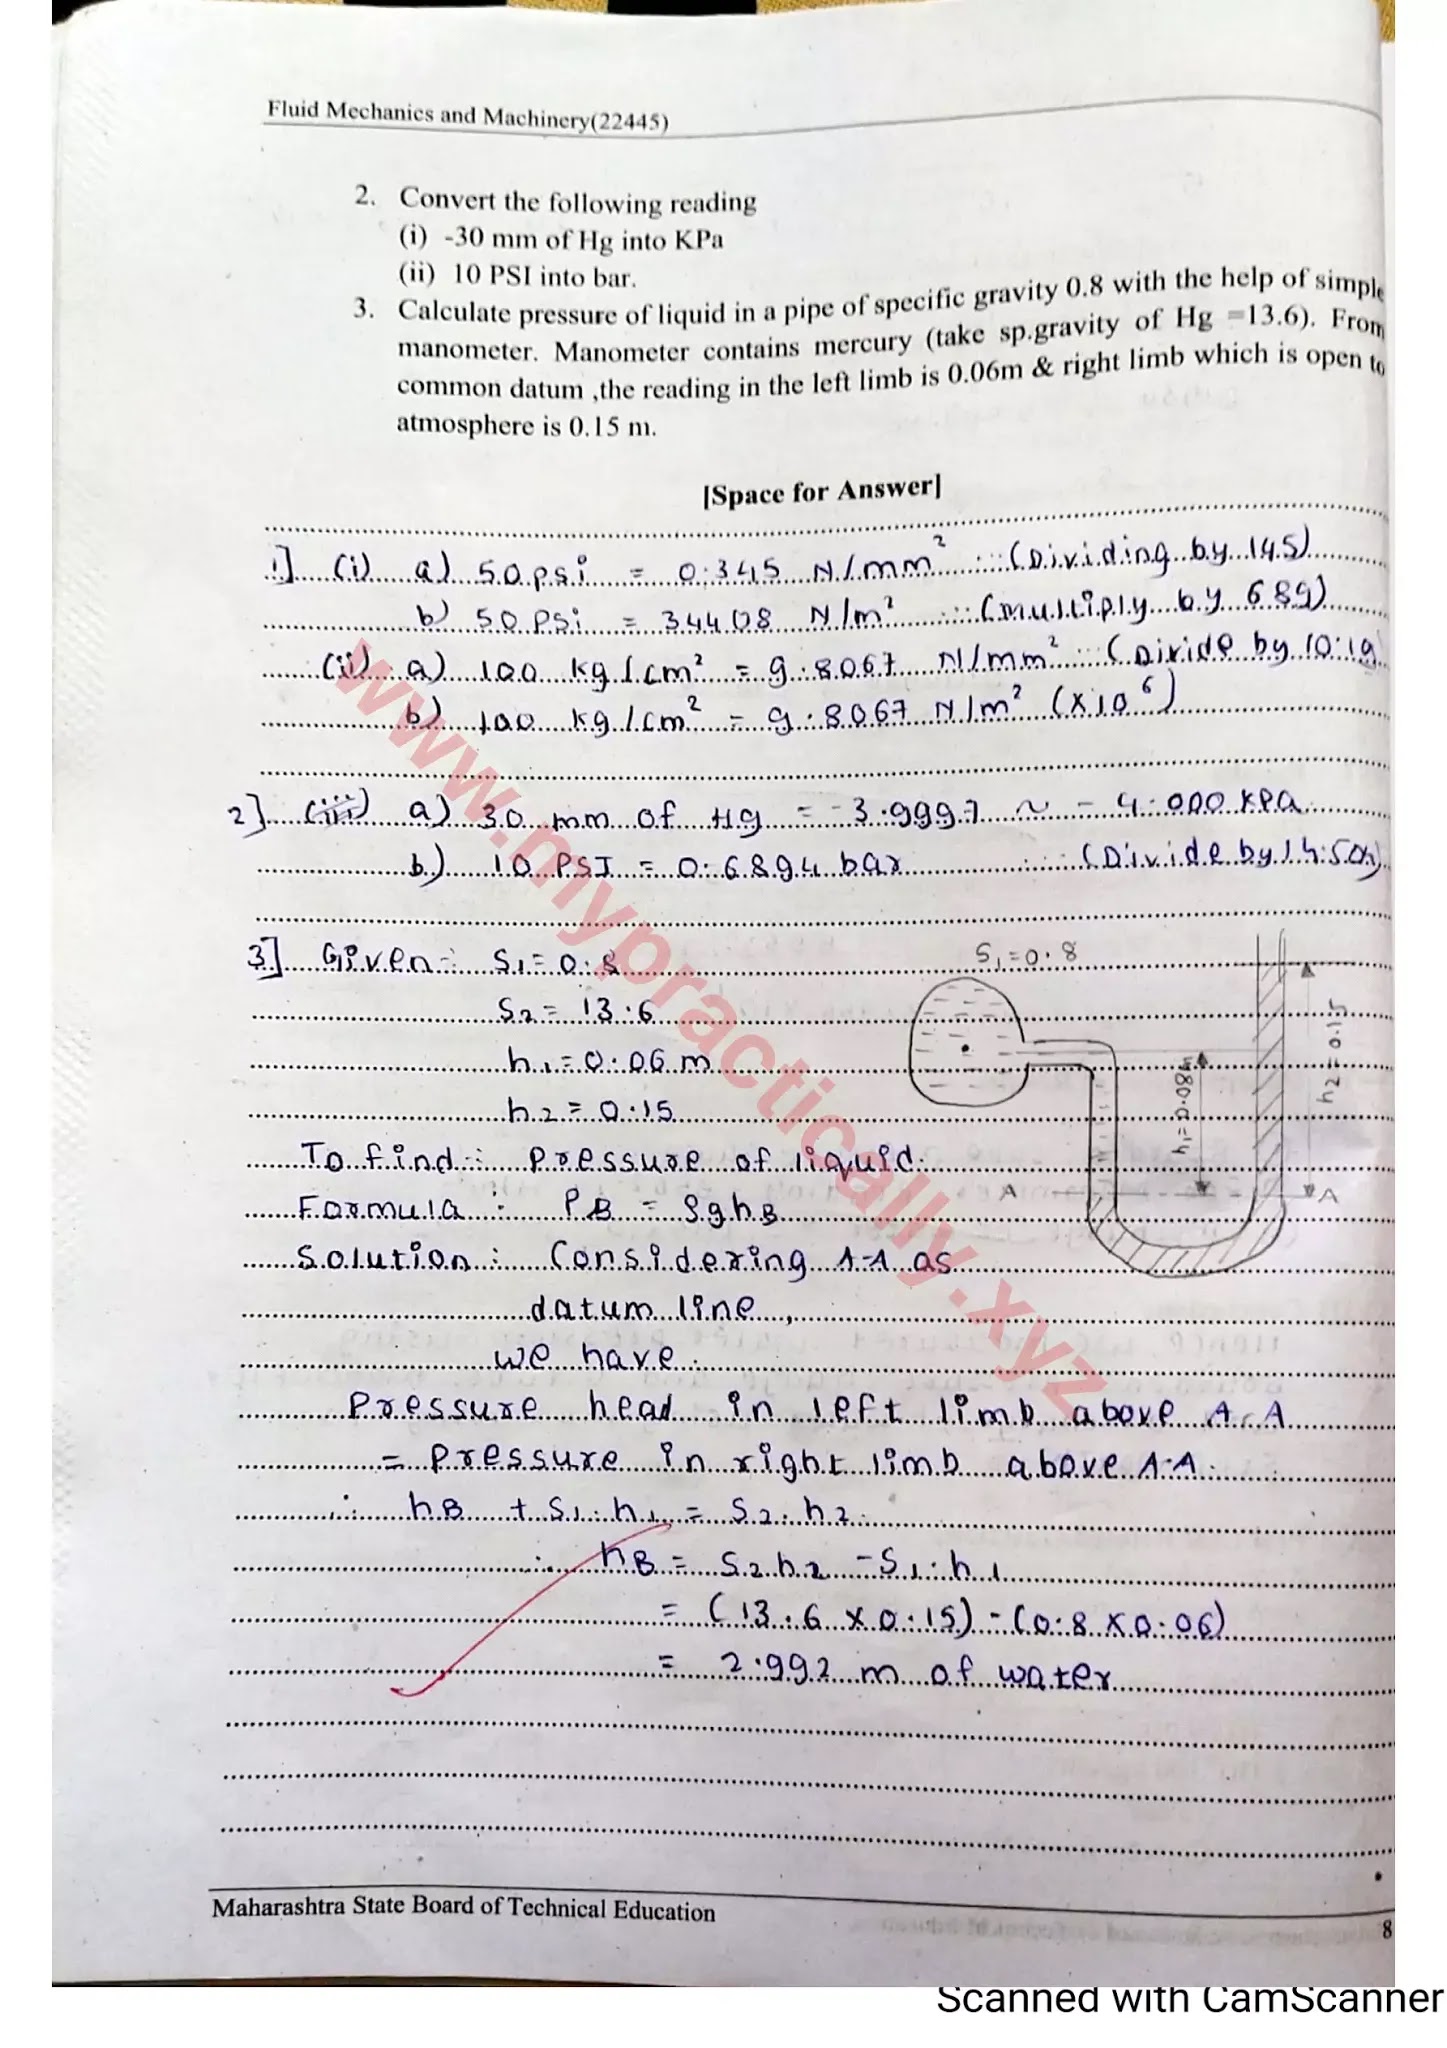 Fluid Mechanics and Machinery(22445)
2. Convert the following reading
(i) -30 mm of Hg into KPa
(ii) 10 PSI into bar.
3. Calculate pressure of liquid in a pipe of specific gravity 0.8 with the help of simple
manometer. Manometer contains mercury (take sp.gravity of Hg =13.6). From
common datum ,the reading in the left limb is 0.06m & right limb which is open to
atmosphere is 0.15 m.
[Space for Answer]
1] (i) a) 50 psi = 0.345 N/mm² ... (Dividing by 145)
b) 50 PSi = 34408 N/m² ... (multiply by 689)
(ii) a) 100 kg/cm² = 9.8067 N/mm² ... (Divide by 10.19
b) 100 kg/cm² = 9.8067 N/m² (x10⁶)
2] a) 30 mm of Hg = -3.9997 ~ - 4.000 KPa
b) 10 PSI = 0.6894 bar ... (Divide by 14.504)
3] Given:- S₁ = 0.8
S₁ = 0.8
S₂ = 13.6
h₁ = 0.06 m
h₂ = 0.15
h₁=0.08m
h₂ = 0.15
To find:- Pressure of liquid.
A A
Formula : PB = ρghB
Solution : Considering A-A as
datum line,
we have
Pressure head in left limb above A-A
= Pressure in right limb above A-A.
∴ hB + S₁.h₁ = S₂.h₂
∴ hB = S₂h₂ - S₁.h₁
= (13.6 x 0.15) - (0.8 x 0.06)
= 2.992 m of water
www.mypractically.xyz
Maharashtra State Board of Technical Education
8
Scanned with CamScanner